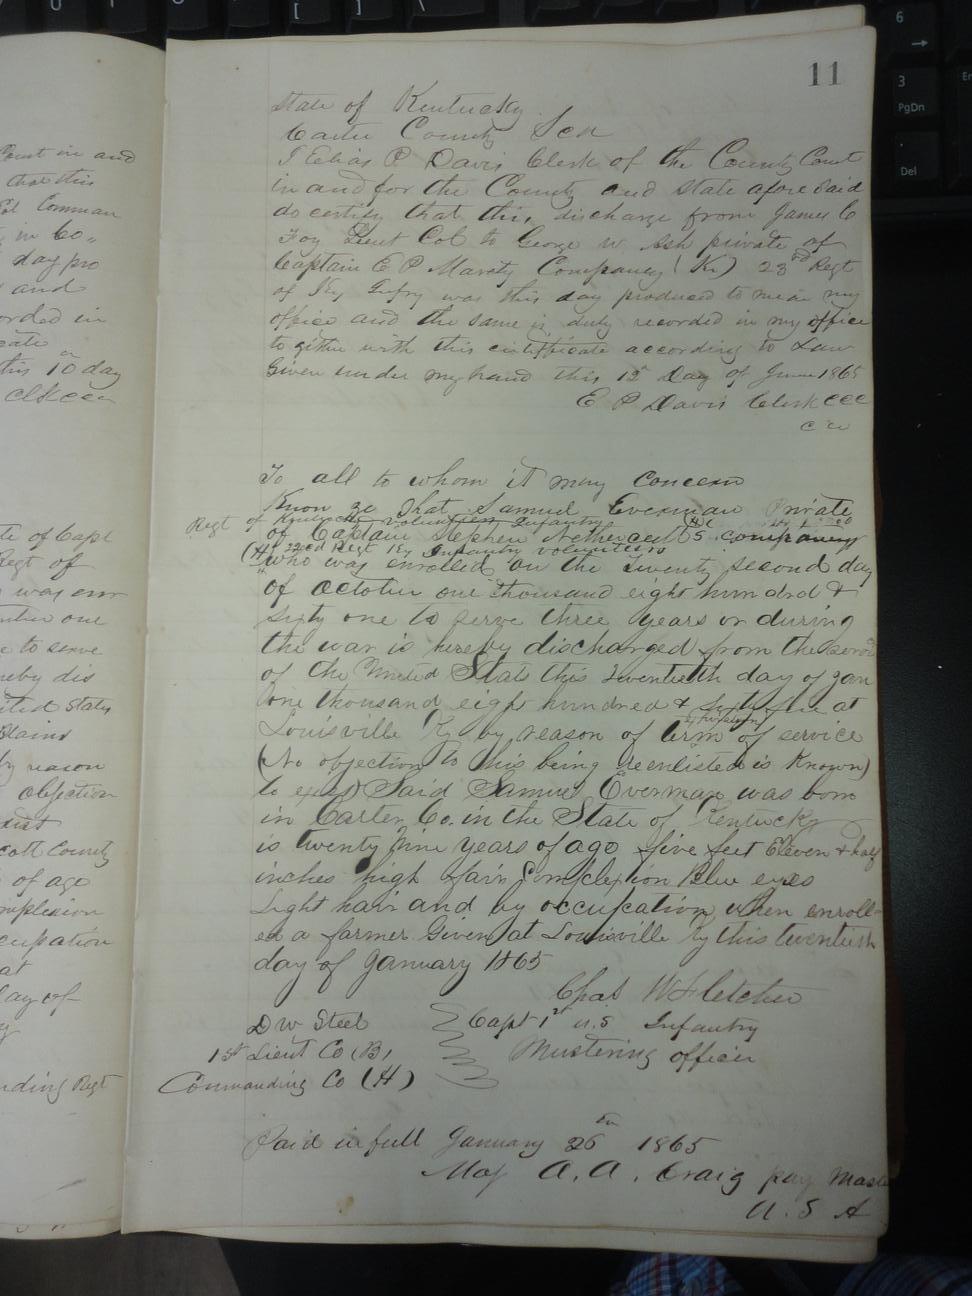 11
State of Kentucky
Carter County Sct
I Elias P Davis Clerk of the County Court
in and for the County and State afore Said
do certify that this discharge from James C
Foy Lieut Col to George W Ash private of
Captain E P Company (K) 23rd Regt
of Ky Infry was this day produced to me in my
office and the same is duly recorded in my office
to gither with this certificate according to Law
Given under my hand this 12 Day of June 1865
E P Davis Clerk CCC
To all to whom it may Concern
Know ye that Samuel Everman Private
Regt of Kentucky volunteer Infantry
of Captain Stephen company
(H) 22nd Regt Ky Infantry volunteers
who was enrolled on the Twenty second day
of octoter one thousand eight hundred &
sixty one to serve three years or during
the war is hereby discharged from the
of the United Stats this twentieth day of Jan
one thousand eight hundred & Sixty five at
Louisville Ky by reason of expiration term of service
(No objection to his being reenlisted is Known)
to exist) Said Samuel Everman was born
in Carter Co. in the State of Kentucky
is twenty Nine years of ago five feet Eleven & half
inches high fair Complexion Blue eyes
Light hair and by occupation when enroll-
ed a farmer Given at Louisville Ky this twentieth
day of January 1865
Chas W Fletcher
D W Steel Capt 1st U.S Infantry
1st Lieut Co (B) Mustering officer
Commanding Co (H)
Paid in full January 26th 1865
Maj A. A. Craig pay Mast
U. S A
Court in and
that this
Comman
in Co
day pro
and
orded in
cate
this 10 day
te of Capt
Regt of
was enr
one
to serve
reby dis
ited States
by reason
objection
xist
cott County
of ago
mplexion
cupation
at
day of
nding Regt